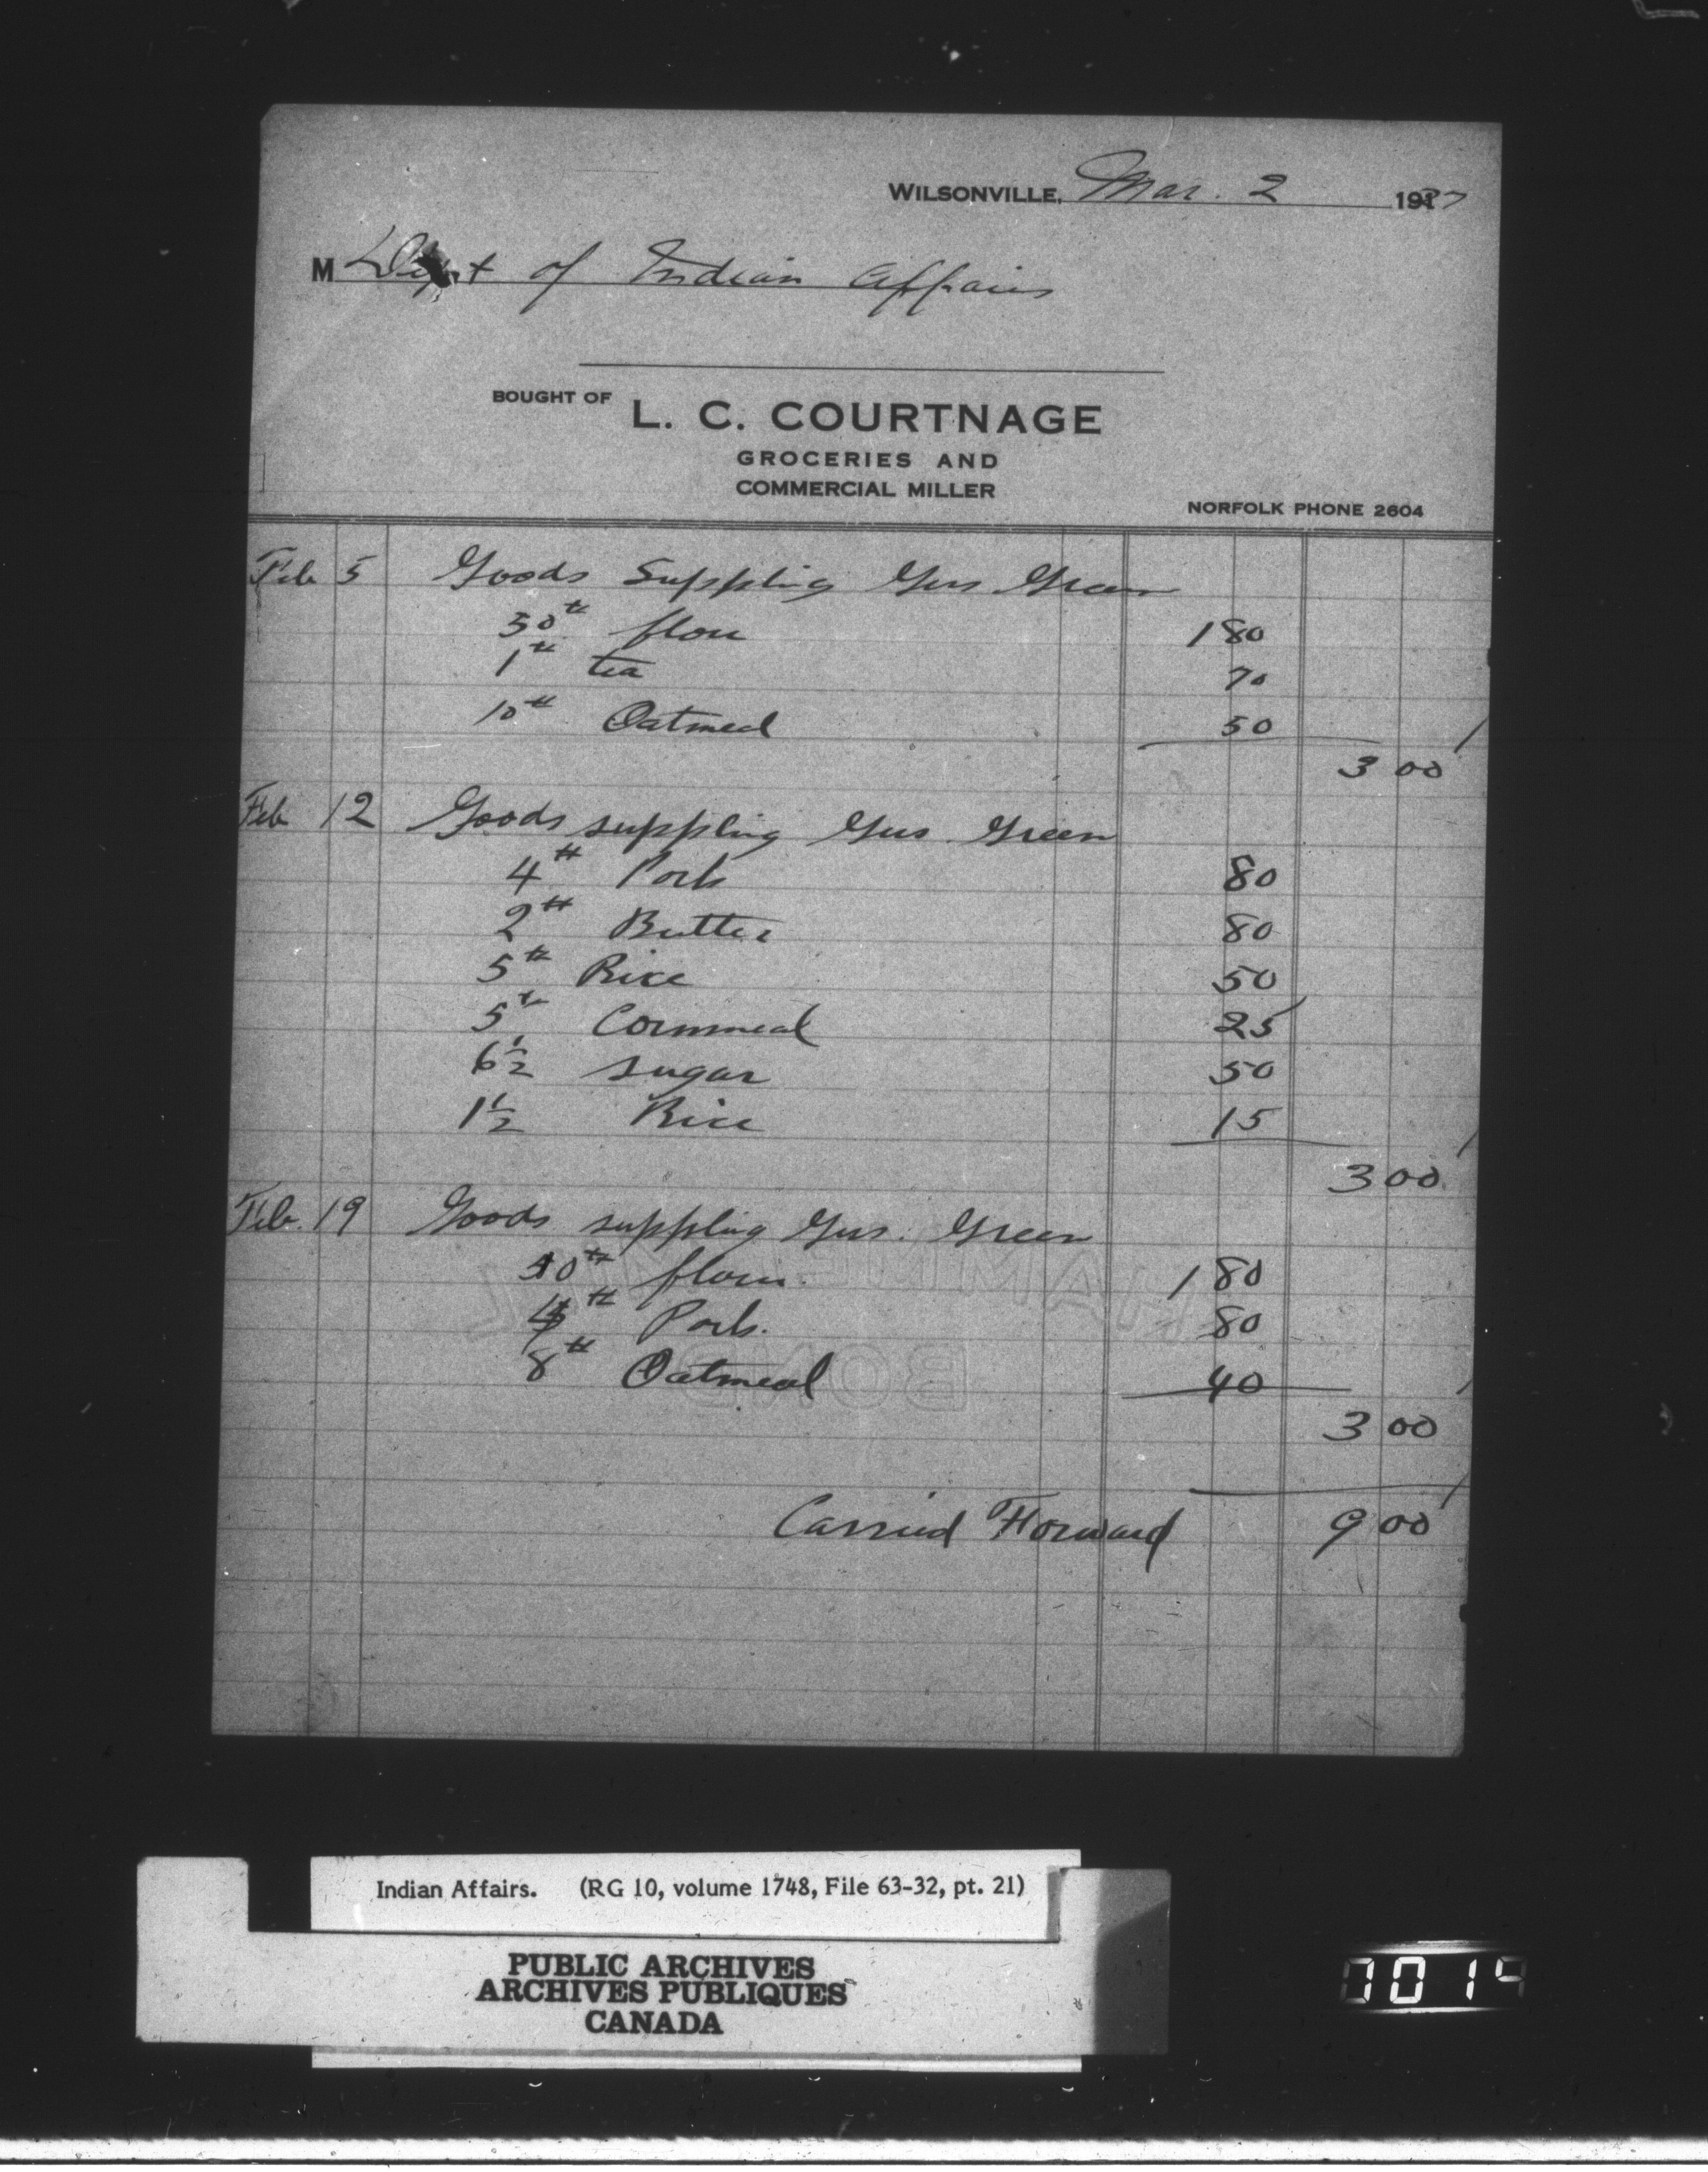 WILSONVILLE, Mar. 2 1937
M Dept of Indian Affairs
BOUGHT OF L. C. COURTNAGE
GROCERIES AND
COMMERCIAL MILLER
NORFOLK PHONE 2604
Feb 5 Goods Suppling Gus Green
50# flou 1 80
1# tea 70
10# Oatmeal 50
3 00
Feb 12 Goods suppling Gus Green
4# Pork 80
2# Butter 80
5# Rice 50
5# Cornmeal 25
6½ sugar 50
1½ Rice 15
3 00
Feb. 19 Goods suppling Gus. Green
50# flour 1 80
4# Pork. 80
8# Oatmeal 40
3 00
Carried Forward 9 00
Indian Affairs. (RG 10, volume 1748, File 63-32, pt. 21)
PUBLIC ARCHIVES
ARCHIVES PUBLIQUES
CANADA
0019